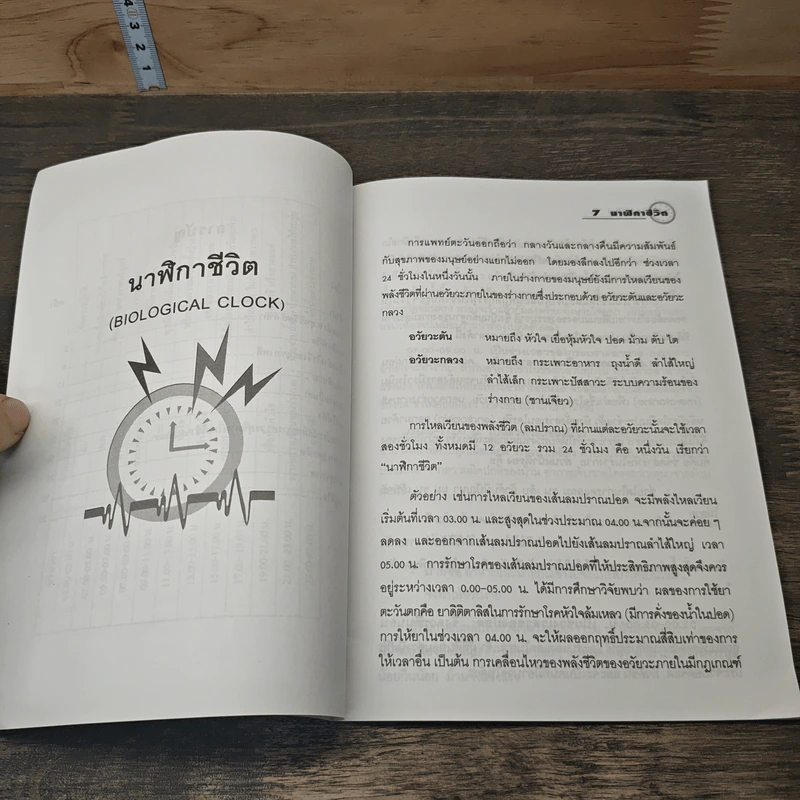 4
3
2
1
นาฬิกาชีวิต
(BIOLOGICAL CLOCK)
7 นาฬิกาชีวิต
การแพทย์ตะวันออกถือว่า กลางวันและกลางคืนมีความสัมพันธ์
กับสุขภาพของมนุษย์อย่างแยกไม่ออก โดยมองลึกลงไปอีกว่า ช่วงเวลา
24 ชั่วโมงในหนึ่งวันนั้น ภายในร่างกายของมนุษย์ยังมีการไหลเวียนของ
พลังชีวิตที่ผ่านอวัยวะภายในของร่างกายซึ่งประกอบด้วย อวัยวะตันและอวัยวะ
กลวง
อวัยวะตัน หมายถึง หัวใจ เยื่อหุ้มหัวใจ ปอด ม้าม ตับ ไต
อวัยวะกลวง หมายถึง กระเพาะอาหาร ถุงน้ำดี ลำไส้ใหญ่
ลำไส้เล็ก กระเพาะปัสสาวะ ระบบความร้อนของ
ร่างกาย (ซานเจียว)
การไหลเวียนของพลังชีวิต (ลมปราณ) ที่ผ่านแต่ละอวัยวะนั้นจะใช้เวลา
สองชั่วโมง ทั้งหมดมี 12 อวัยวะ รวม 24 ชั่วโมง คือ หนึ่งวัน เรียกว่า
“นาฬิกาชีวิต”
ตัวอย่าง เช่นการไหลเวียนของเส้นลมปราณปอด จะมีพลังไหลเวียน
เริ่มต้นที่เวลา 03.00 น. และสูงสุดในช่วงประมาณ 04.00 น.จากนั้นจะค่อย ๆ
ลดลง และออกจากเส้นลมปราณปอดไปยังเส้นลมปราณลำไส้ใหญ่ เวลา
05.00 น. การรักษาโรคของเส้นลมปราณปอดที่ให้ประสิทธิภาพสูงสุดจึงควร
อยู่ระหว่างเวลา 0.00-05.00 น. ได้มีการศึกษาวิจัยพบว่า ผลของการใช้ยา
ตะวันตกคือ ยาดิติตาลิสในการรักษาโรคหัวใจล้มเหลว (มีการคั่งของน้ำในปอด)
การให้ยาในช่วงเวลา 04.00 น. จะให้ผลออกฤทธิ์ประมาณสี่สิบเท่าของการ
ให้เวลาอื่น เป็นต้น การเคลื่อนไหวของพลังชีวิตของอวัยวะภายในมีกฎเกณฑ์